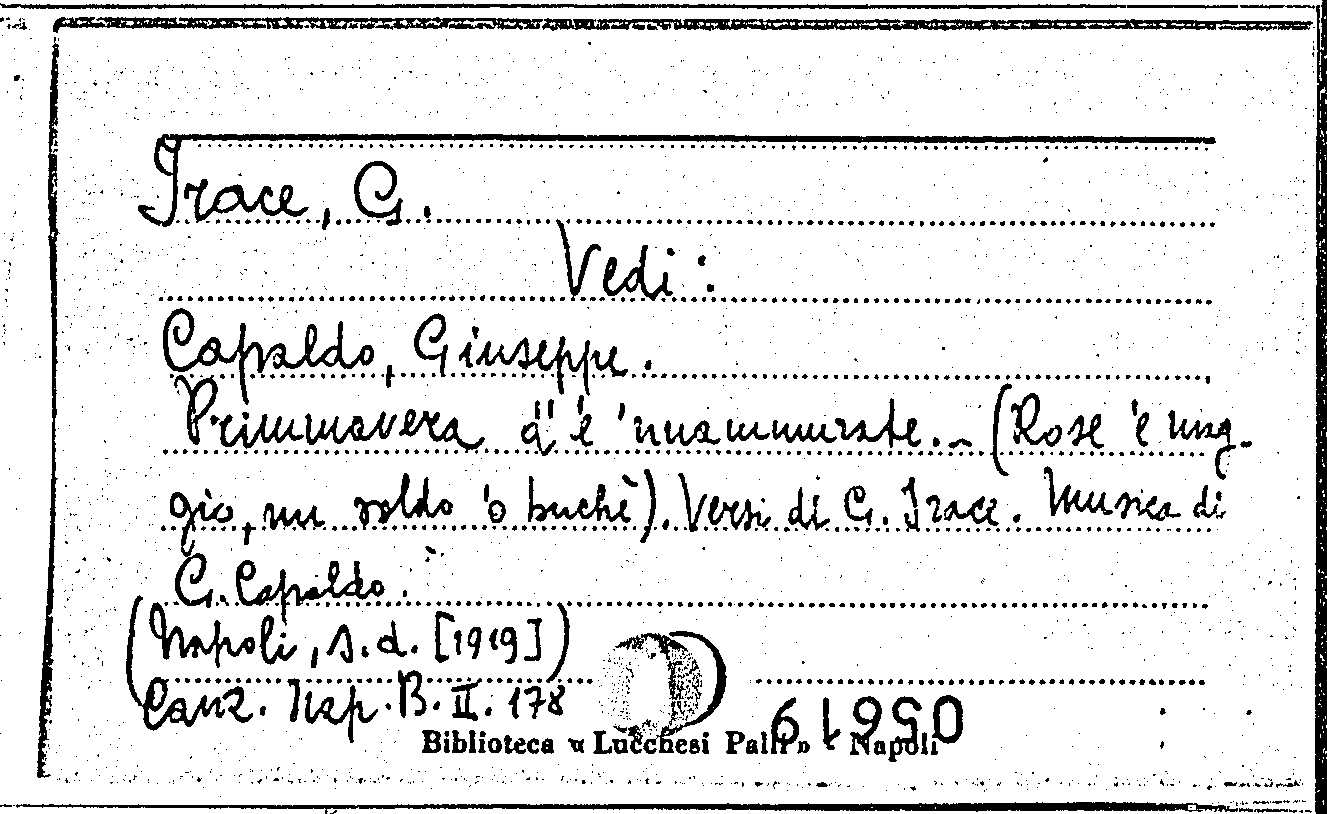 Irace, G.
Vedi :
Capaldo, Giuseppe.
Primmavera d''e 'nnammurate. - (Rose 'e mag-
gio, nu soldo 'o buchè). Versi di G. Irace. Musica di
G. Capaldo.
(Napoli, s.d. [1919])
Canz. Nap. B. II. 178
05619
Biblioteca « Lucchesi Palli » - Napoli